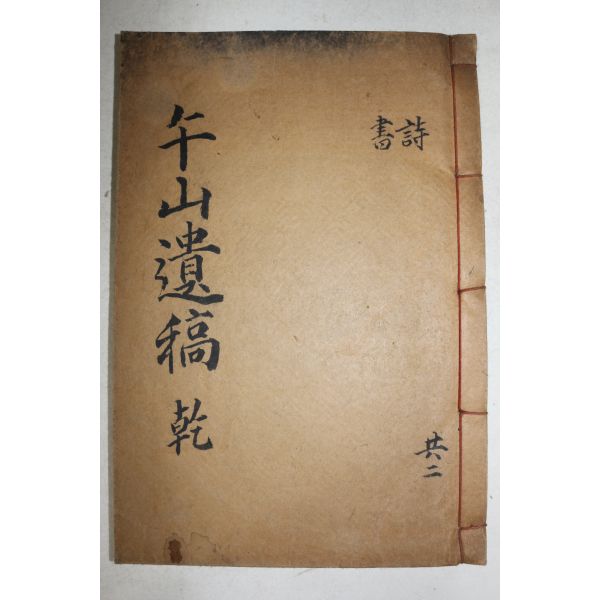 詩
書
午山遺稿 乾
共二